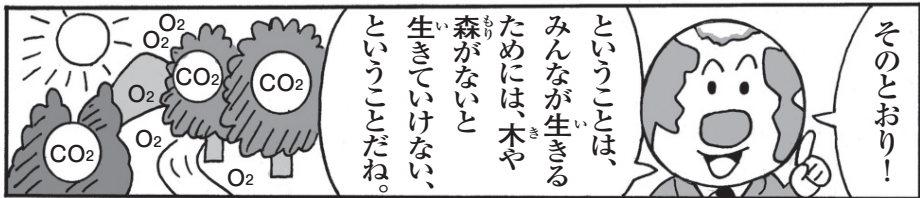 そのとおり！
ということは、
みんなが生きる
ためには、木や
森がないと
生きていけない、
ということだね。
O2
O2
CO2
CO2
O2
O2
CO2
O2